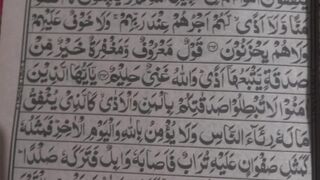 مَنًّا وَّلَاۤ اَذًىۙ لَّهُمْ اَجْرُهُمْ عِنْدَ رَبِّهِمْۚ وَلَا خَوْفٌ عَلَيْهِمْ
وَلَا هُمْ يَحْزَنُوْنَ قَوْلٌ مَّعْرُوْفٌ وَّمَغْفِرَةٌ خَيْرٌ مِّنْ
صَدَقَةٍ يَّتْبَعُهَاۤ اَذًىؕ وَاللّٰهُ غَنِىٌّ حَلِيْمٌ يٰۤاَيُّهَا الَّذِيْنَ
اٰمَنُوْا لَا تُبْطِلُوْا صَدَقٰتِكُمْ بِالْمَنِّ وَالْاَذٰىۙ كَالَّذِىْ يُنْفِقُ
مَالَهٗ رِئَآءَ النَّاسِ وَلَا يُؤْمِنُ بِاللّٰهِ وَالْيَوْمِ الْاٰخِرِؕ فَمَثَلُهٗ
كَمَثَلِ صَفْوَانٍ عَلَيْهِ تُرَابٌ فَاَصَابَهٗ وَابِلٌ فَتَرَكَهٗ صَلْدًاؕ